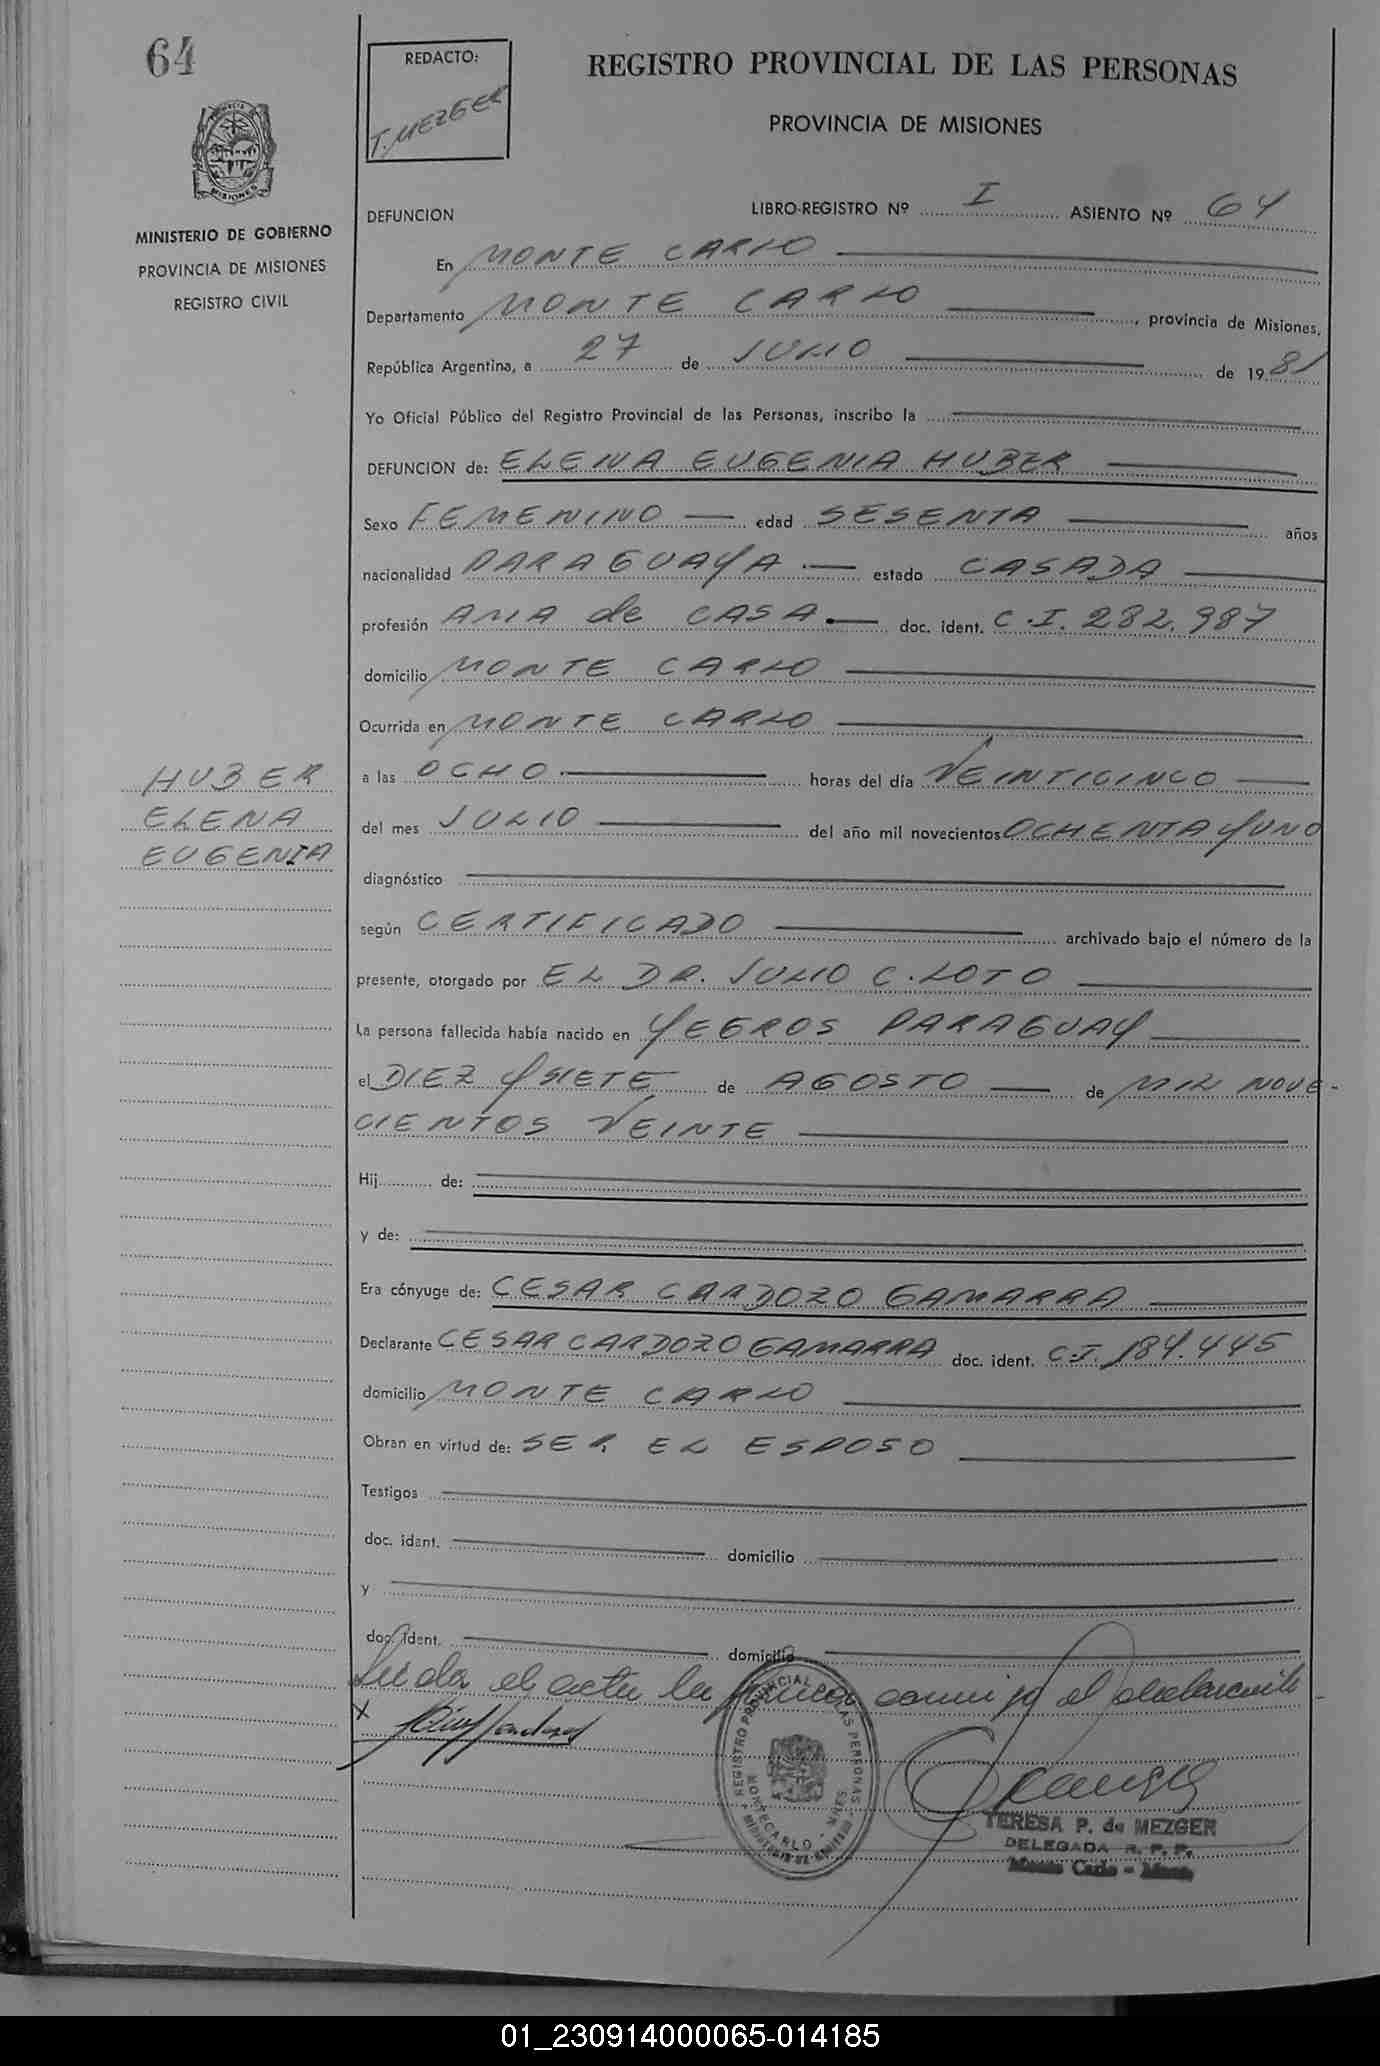 64
REDACTO:
T. MEZGER
REGISTRO PROVINCIAL DE LAS PERSONAS
PROVINCIA DE MISIONES
MISIONES
MINISTERIO DE GOBIERNO
PROVINCIA DE MISIONES
REGISTRO CIVIL
DEFUNCION LIBRO-REGISTRO Nº I ASIENTO Nº 64
En MONTE CARLO
Departamento MONTE CARLO, provincia de Misiones,
República Argentina, a 27 de JULIO de 1981
Yo Oficial Público del Registro Provincial de las Personas, inscribo la
DEFUNCION de: ELENA EUGENIA HUBER
Sexo FEMENINO edad SESENTA años
nacionalidad PARAGUAYA estado CASADA
profesión AMA de CASA doc. ident. C.I. 282.987
domicilio MONTE CARLO
Ocurrida en MONTE CARLO
HUBER
ELENA
EUGENIA
a las OCHO horas del día VEINTICINCO
del mes JULIO del año mil novecientos OCHENTA Y UNO
diagnóstico
según CERTIFICADO archivado bajo el número de la
presente, otorgado por EL DR. JULIO C. LOTO
La persona fallecida había nacido en YEGROS PARAGUAY
el DIEZ Y SIETE de AGOSTO de MIL NOVE-
CIENTOS VEINTE
Hij de:
y de:
Era cónyuge de: CESAR CARDOZO GAMARRA
Declarante CESAR CARDOZO GAMARRA doc. ident. C.I. 184.445
domicilio MONTE CARLO
Obran en virtud de: SER EL ESPOSO
Testigos
doc. ident. domicilio
y
doc. ident. domicilio
Leida el acta la firma conmigo el declarante
X
REGISTRO PROVINCIAL DE LAS PERSONAS
MONTECARLO - MNES
TERESA P. de MEZGER
DELEGADA R. P. P.
Monte Carlo - Mnes.
01_230914000065-014185